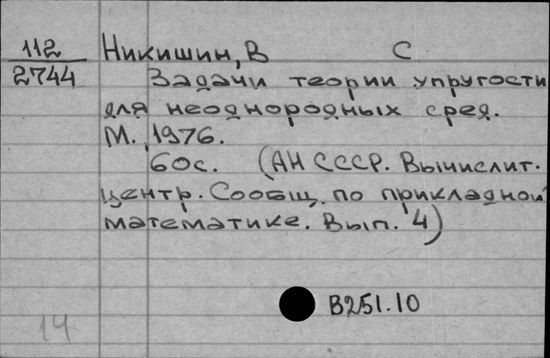 112 Никишин, В С
2744 Задачи теории упругости
для неоднородных сред.
М., 1976.
60с. (АН СССР. Вычислит.
центр. Сообщ. по прикладной
математике. Вып. 4)
В251.10
14